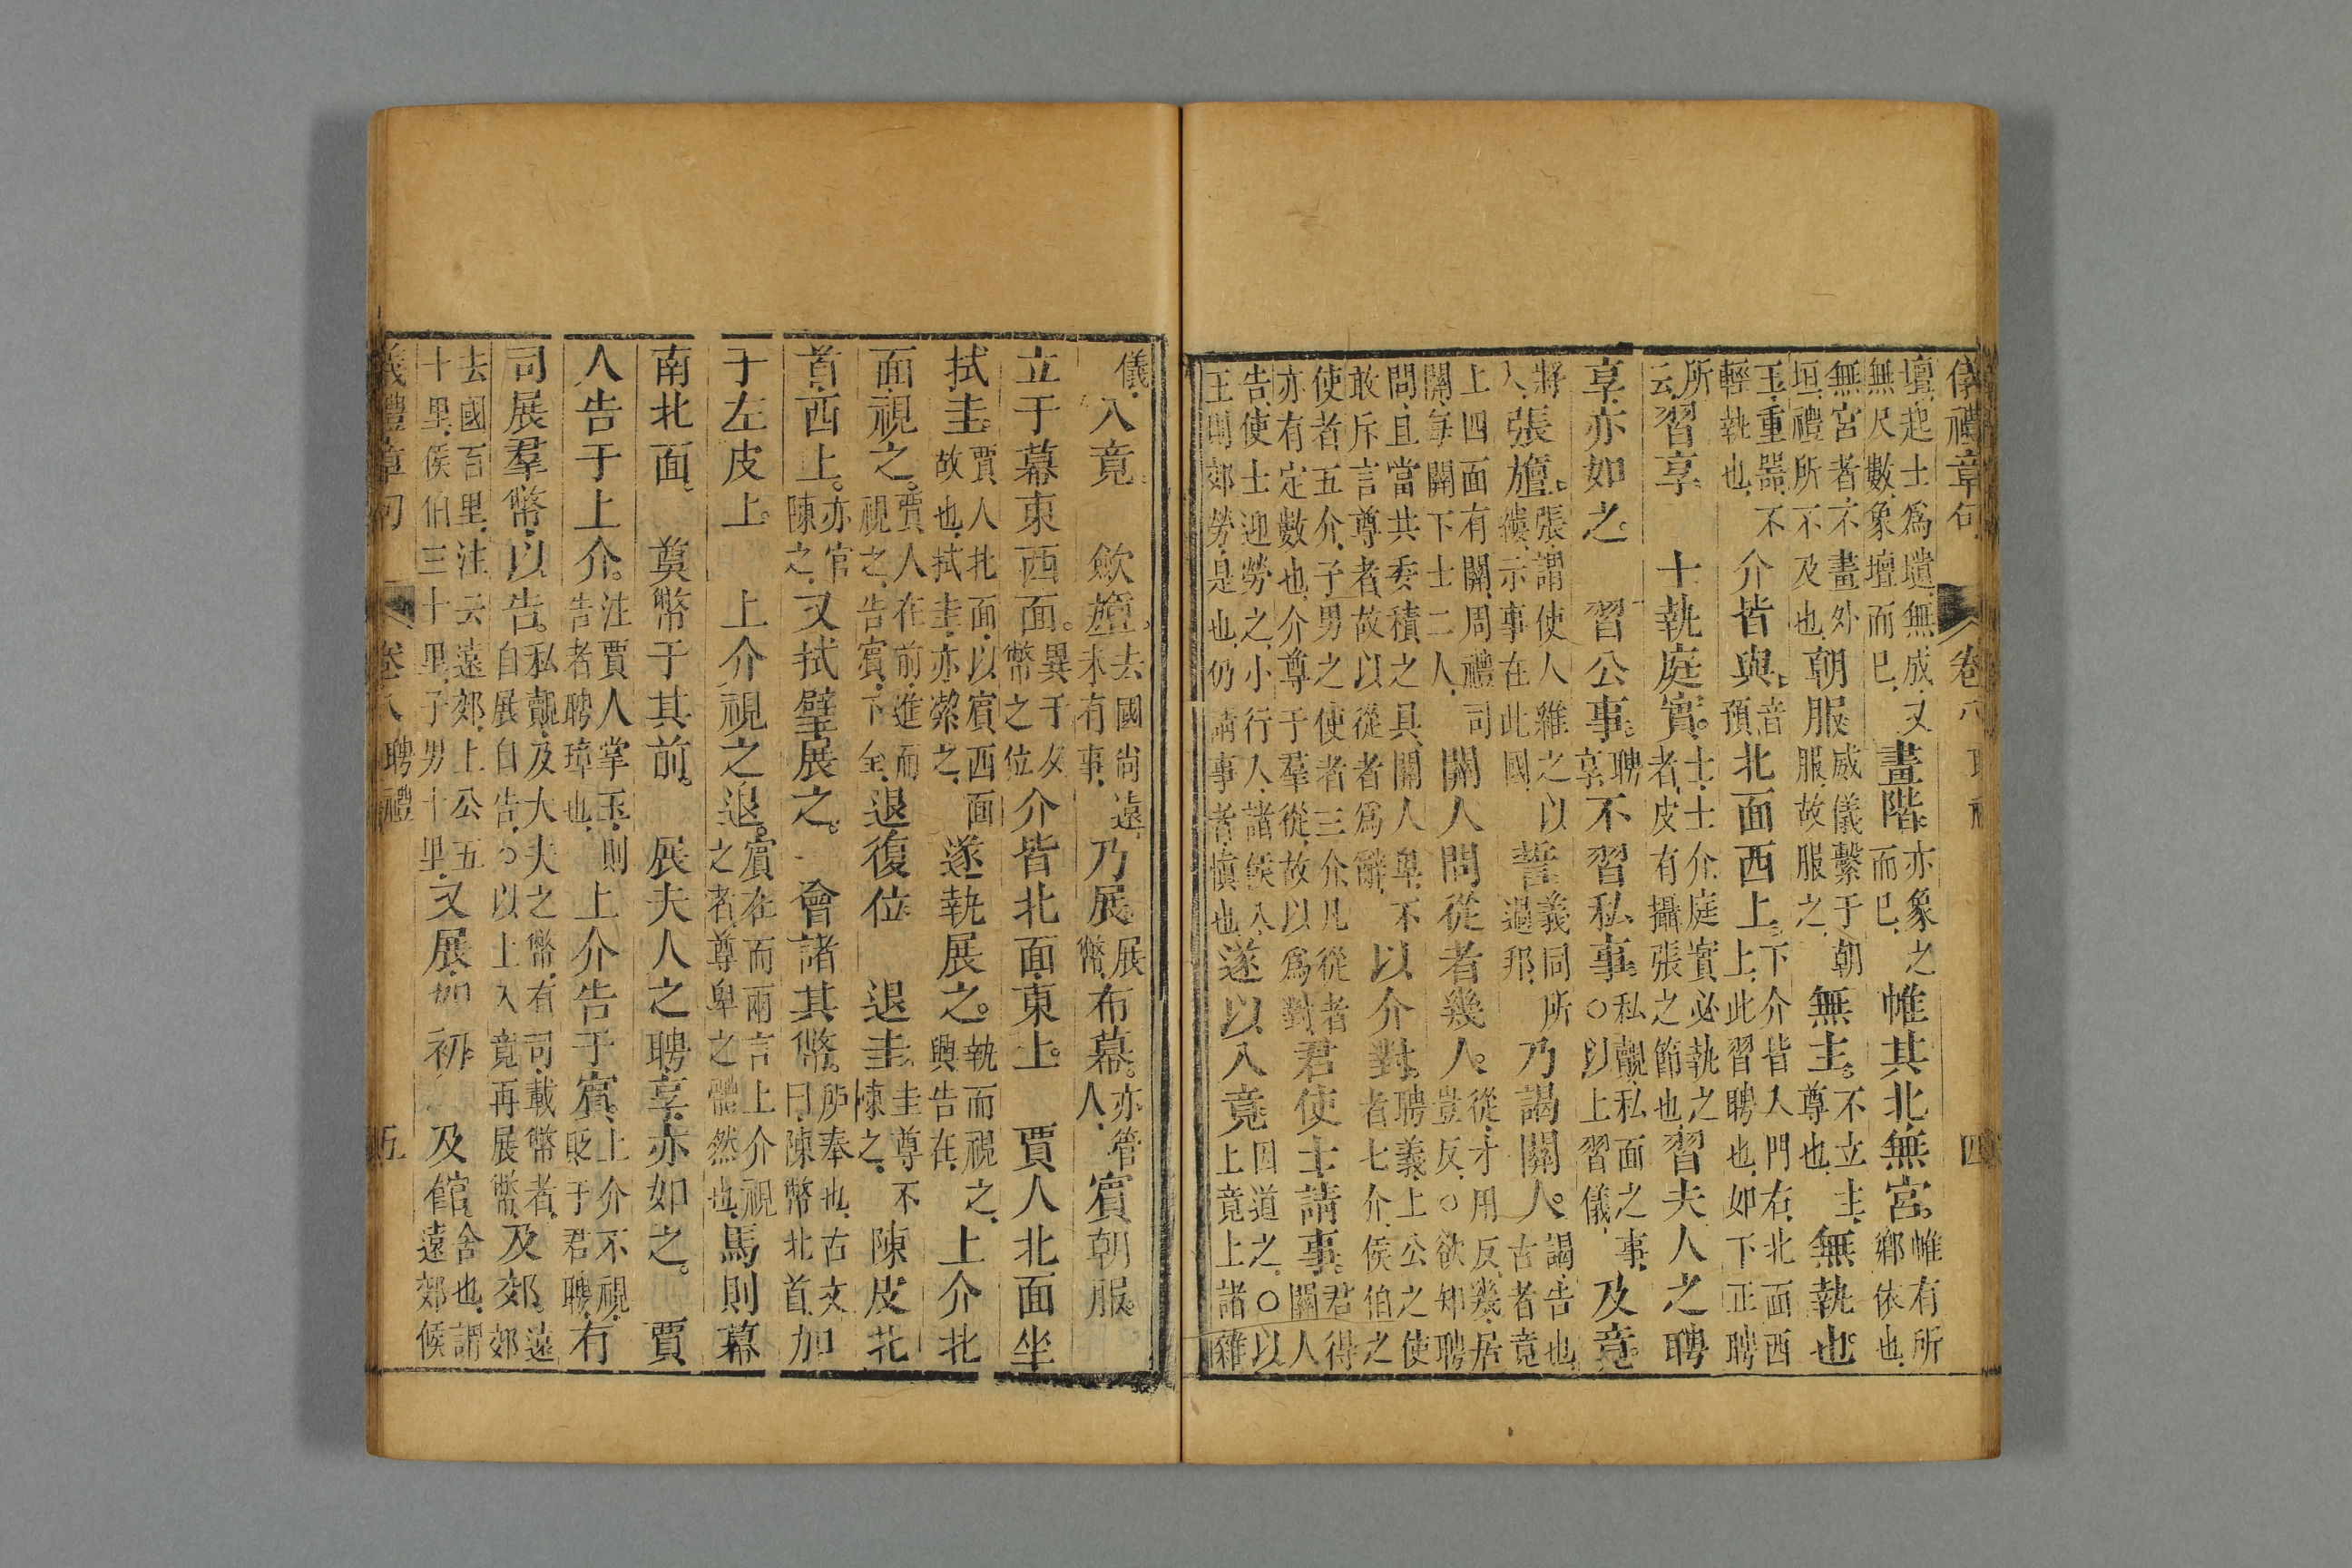 儀禮章句 卷八 聘禮 四
壇起土爲壝無成又無尺數象壇而已畫階亦象之而已帷其北無宮帷有所鄉依也
無宮者不畫外垣禮所不及也朝服威儀繫于朝服故服之無主不立主尊也無執也
玉重器不輕執也介皆與音預北面西上下介皆入門右北面西上此習聘也如下正聘
所云習享士執庭實士士介庭實必執之者皮有攝張之節也習夫人之聘
享亦如之習公事聘享不習私事私覿私面之事○以上習儀及竟
將入張旜張謂使人維之以縷示事在此國誓義同所過邦乃謁關人謁告也古者竟
上四面有關周禮司關每關下士二人關人問從者幾人從才用反幾居豈反○欲知聘
問且當共委積之具關人卑不敢斥言尊者故以從者爲辭以介對聘義上公之使者七介侯伯之
使者五介子男之使者三介凡從者亦有定數也介尊于羣從故以爲對君使士請事君得關人
告使士迎勞之小行人諸侯入王則郊勞是也仍請事者慎也遂以入竟因道之○以上竟上諸雜
儀入竟斂旜去國尚遠未有事乃展展幣布幕亦管人賓朝服
立于幕東西面異于夕幣之位介皆北面東上賈人北面坐
拭圭賈人北面以賓西面故也拭圭亦縈之遂執展之執而視之興告在上介北
面視之賈人在前進而視之告賓下全退復位退圭圭尊不陳之陳皮北
首西上亦官陳之又拭璧展之會諸其幣胪奉也古文曰陳幣北首加
于左皮上上介視之退賓在而兩言上介視之者尊卑之體然也馬則幕
南北面奠幣于其前展夫人之聘享亦如之賈
人告于上介注賈人掌玉則告者聘璋也上介告于賓上介不視貶于君聘有
司展羣幣以告私覿及大夫之幣有司載幣者自展自告○以上入竟再展幣及郊遠郊
去國百里注云遠郊上公五十里侯伯三十里子男十里又展如初及館舍也謂遠郊候
儀禮章句 卷八 聘禮 五